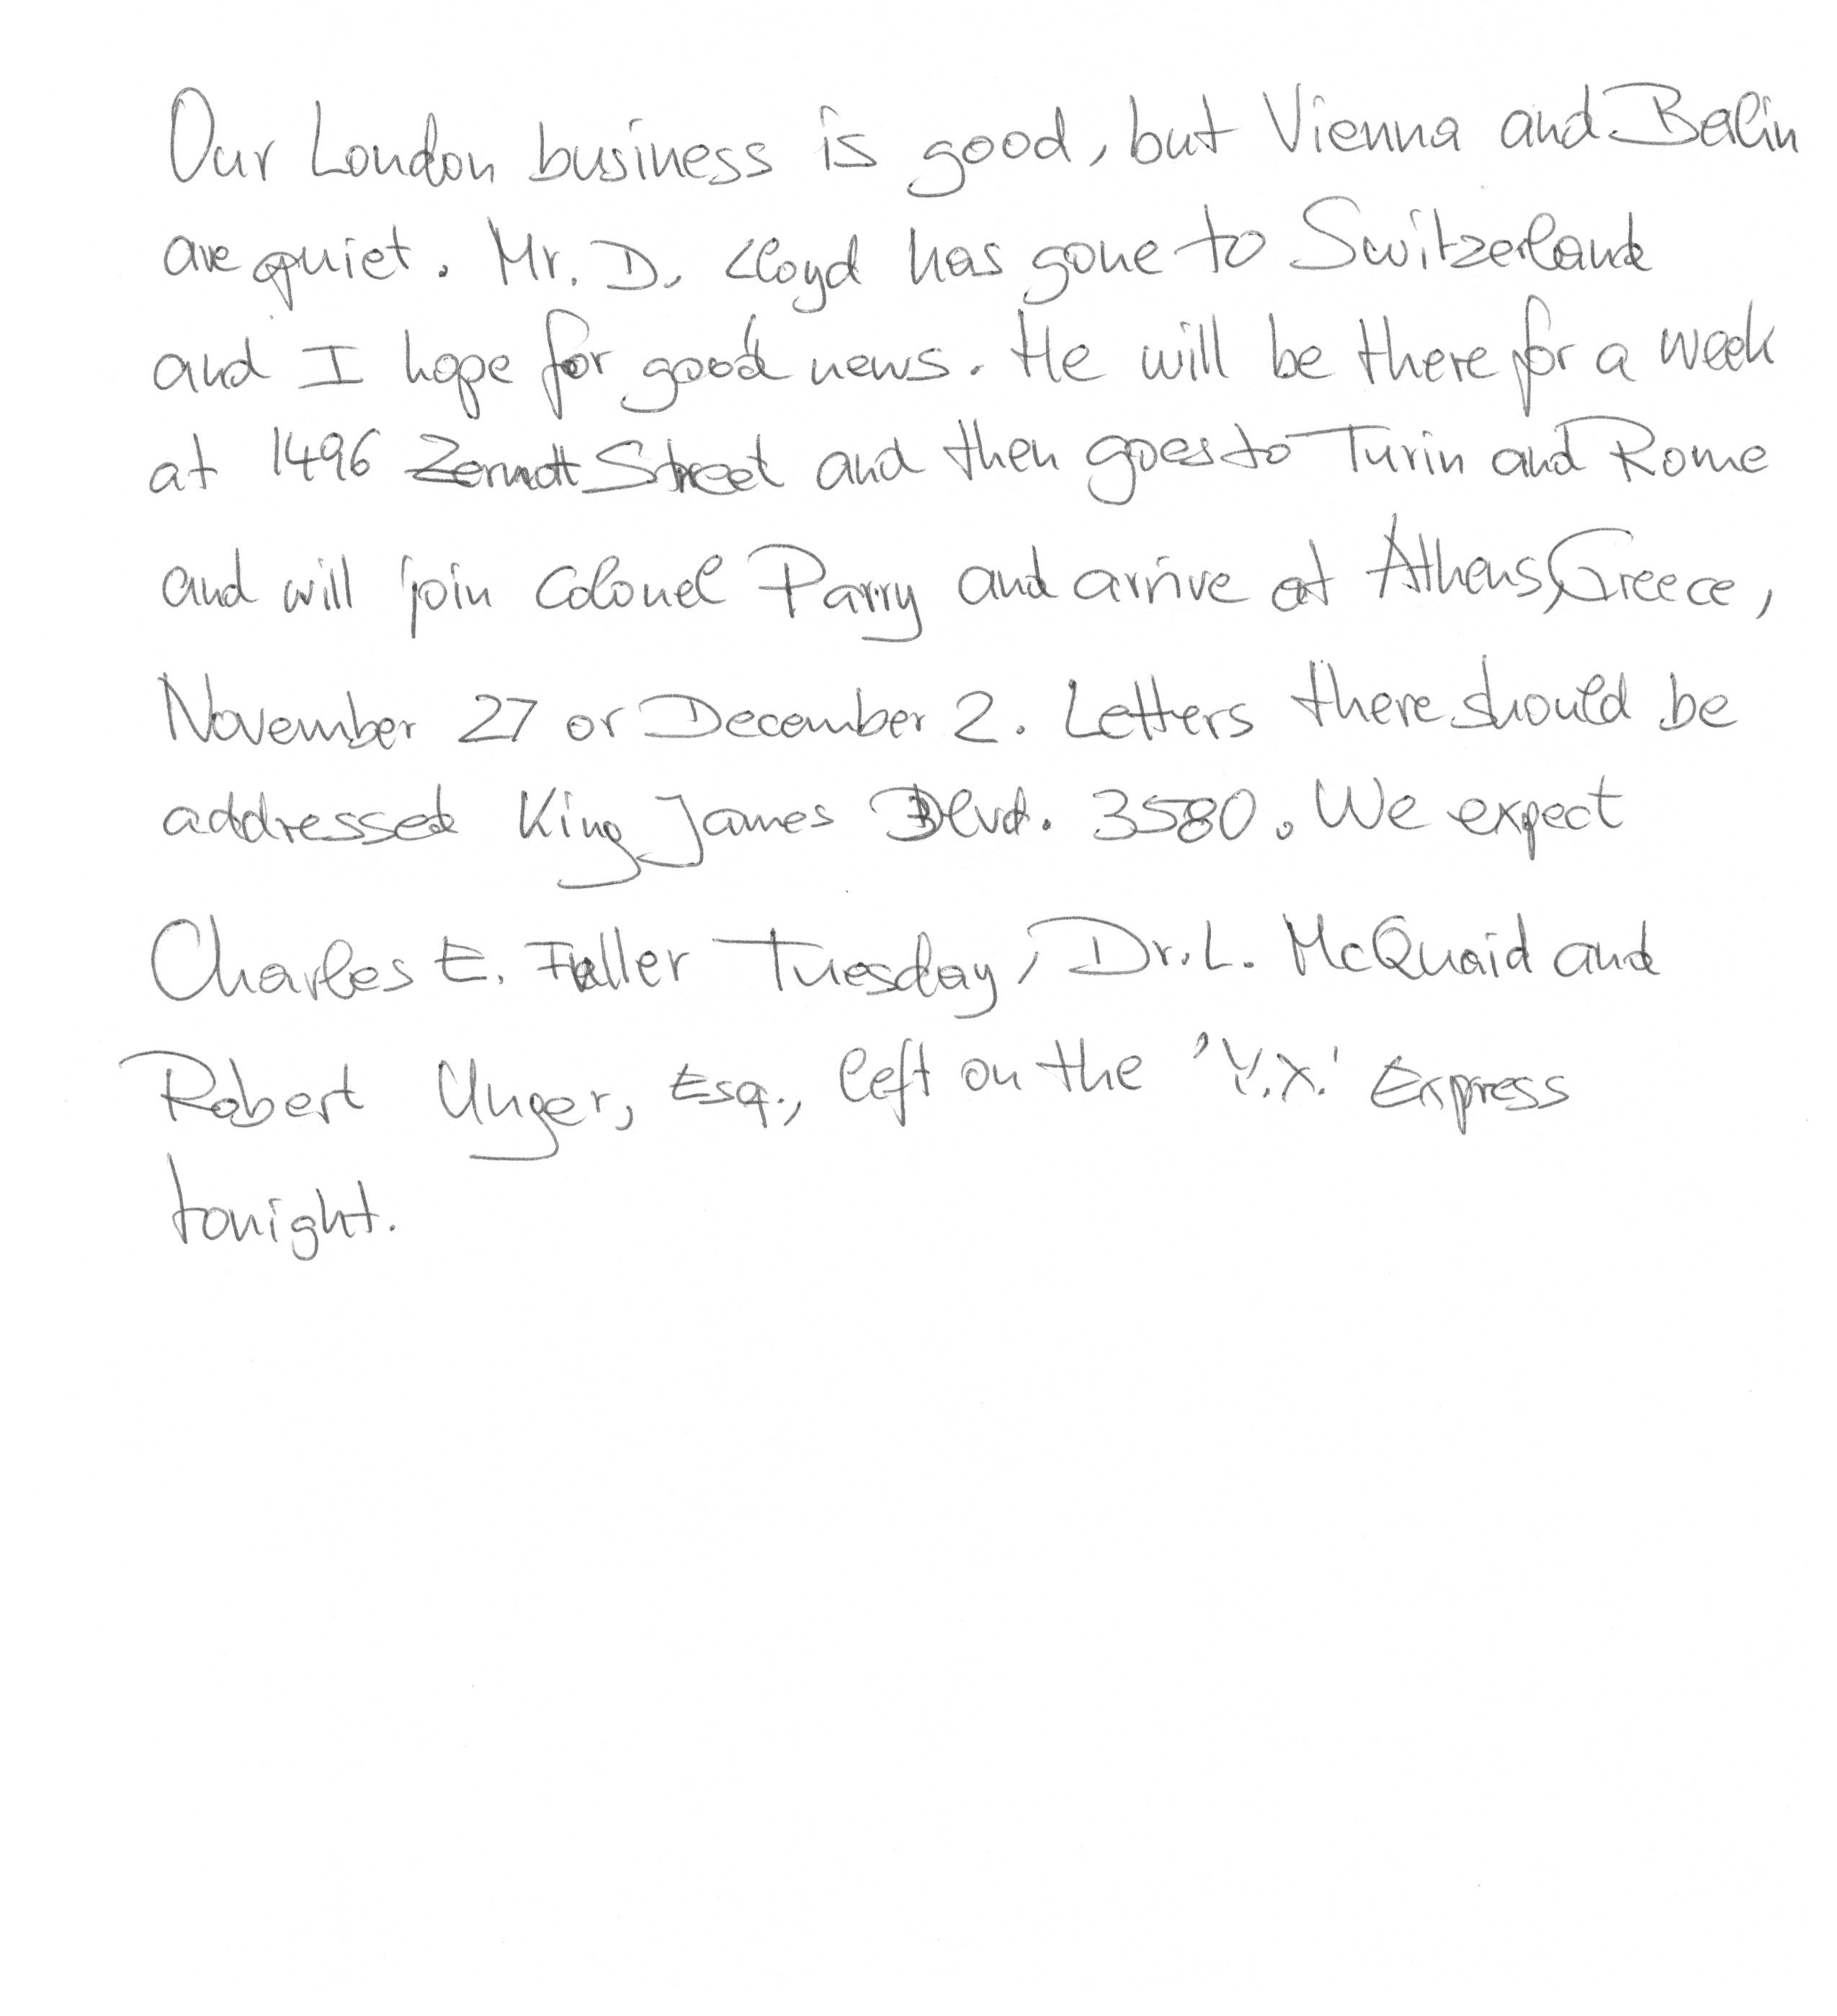 Our London business is good, but Vienna and Berlin
are quiet. Mr. D. Lloyd has gone to Switzerland
and I hope for good news. He will be there for a week
at 1496 Zermott Street and then goes to Turin and Rome
and will join Colonel Parry and arrive at Athens, Greece,
November 27 or December 2. Letters there should be
addressed King James Blvd. 3580. We expect
Charles E. Fuller Tuesday, Dr. L. McQuaid and
Robert Unger, Esq., left on the 'Y.X.' Express
tonight.